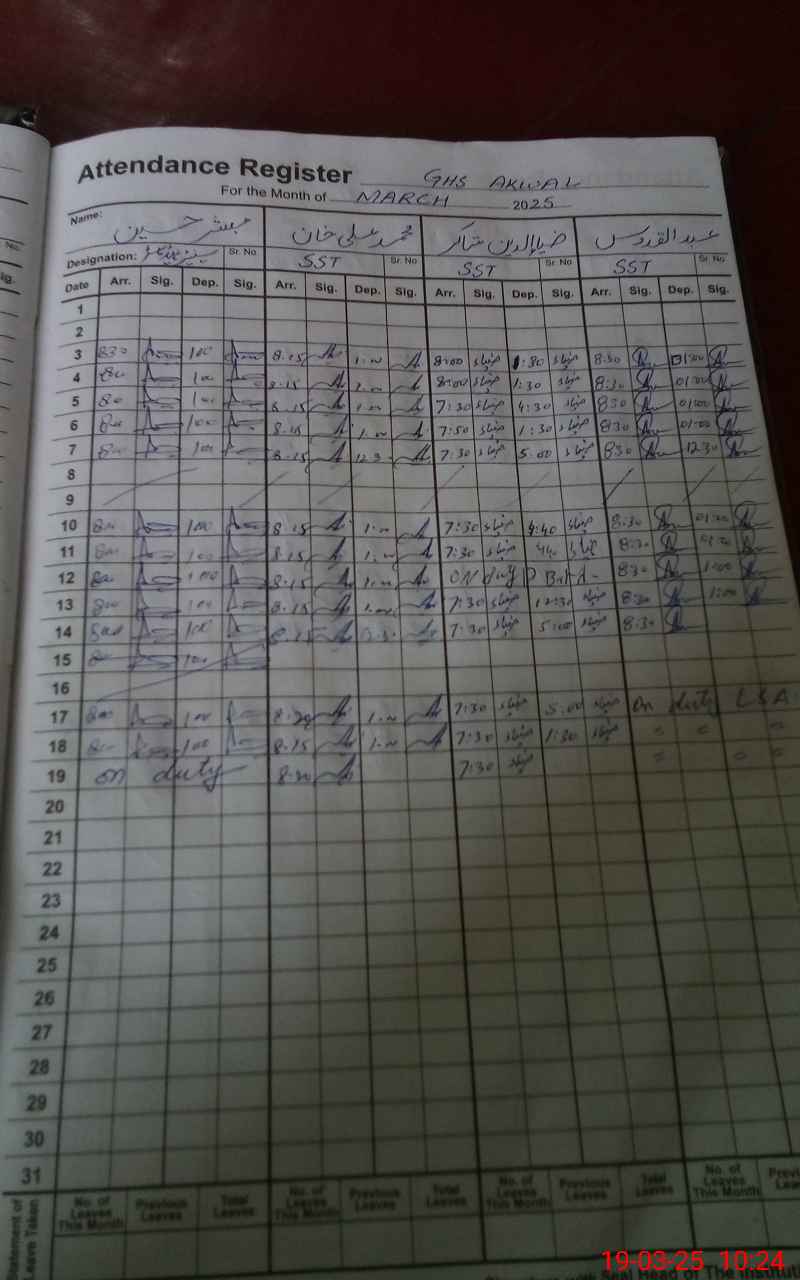 Attendance Register GHS AKWAL
For the Month of MARCH 2025
Name: مبشر حسین محمد علی خان ضیاالدین شاکر عبدالقدوس
Designation: Sr. No SST Sr. No SST Sr. No SST Sr. No
Date Arr. Sig. Dep. Sig. Arr. Sig. Dep. Sig. Arr. Sig. Dep. Sig. Arr. Sig. Dep. Sig.
1
2
3 830 100 8.15 1.00 8:00 ضیاء 1:30 ضیاء 8:30 01:00
4 800 100 8.15 1.00 8:00 ضیاء 1:30 ضیاء 8:30 01:00
5 80 100 8.15 1.00 7:30 ضیاء 4:30 ضیاء 830 01:00
6 800 100 8.15 1.00 7:50 ضیاء 1:30 ضیاء 830 01:00
7 800 100 8.15 12.3 7:30 ضیاء 5:00 ضیاء 830 12:30
8
9
10 800 100 8.15 1.00 7:30 ضیاء 4:40 ضیاء 8:30 01:00
11 800 100 8.15 1.00 7:30 ضیاء 440 ضیاء 8:30 01:00
12 800 100 8.15 1.00 ON duty 830 1:00
13 800 100 8.15 1.00 7:30 ضیاء 12:30 ضیاء 8:30 1:00
14 800 100 8.15 7:30 ضیاء 5:00 ضیاء 8:30
15 100
16
17 800 100 8.20 1.00 7:30 ضیاء 5:00 ضیاء On duty LSA
18 100 8.15 1.00 7:30 ضیاء 1:30 ضیاء " " "
19 on duty 8.20 7:30 ضیاء " " "
20
21
22
23
24
25
26
27
28
29
30
31
Statement of Leave Taken No. of Leaves This Month Previous Leaves Total Leaves No. of Leaves This Month Previous Leaves Total Leaves No. of Leaves This Month Previous Leaves Total Leaves No. of Leaves This Month
Seal Head of The
19-03-25 10:24